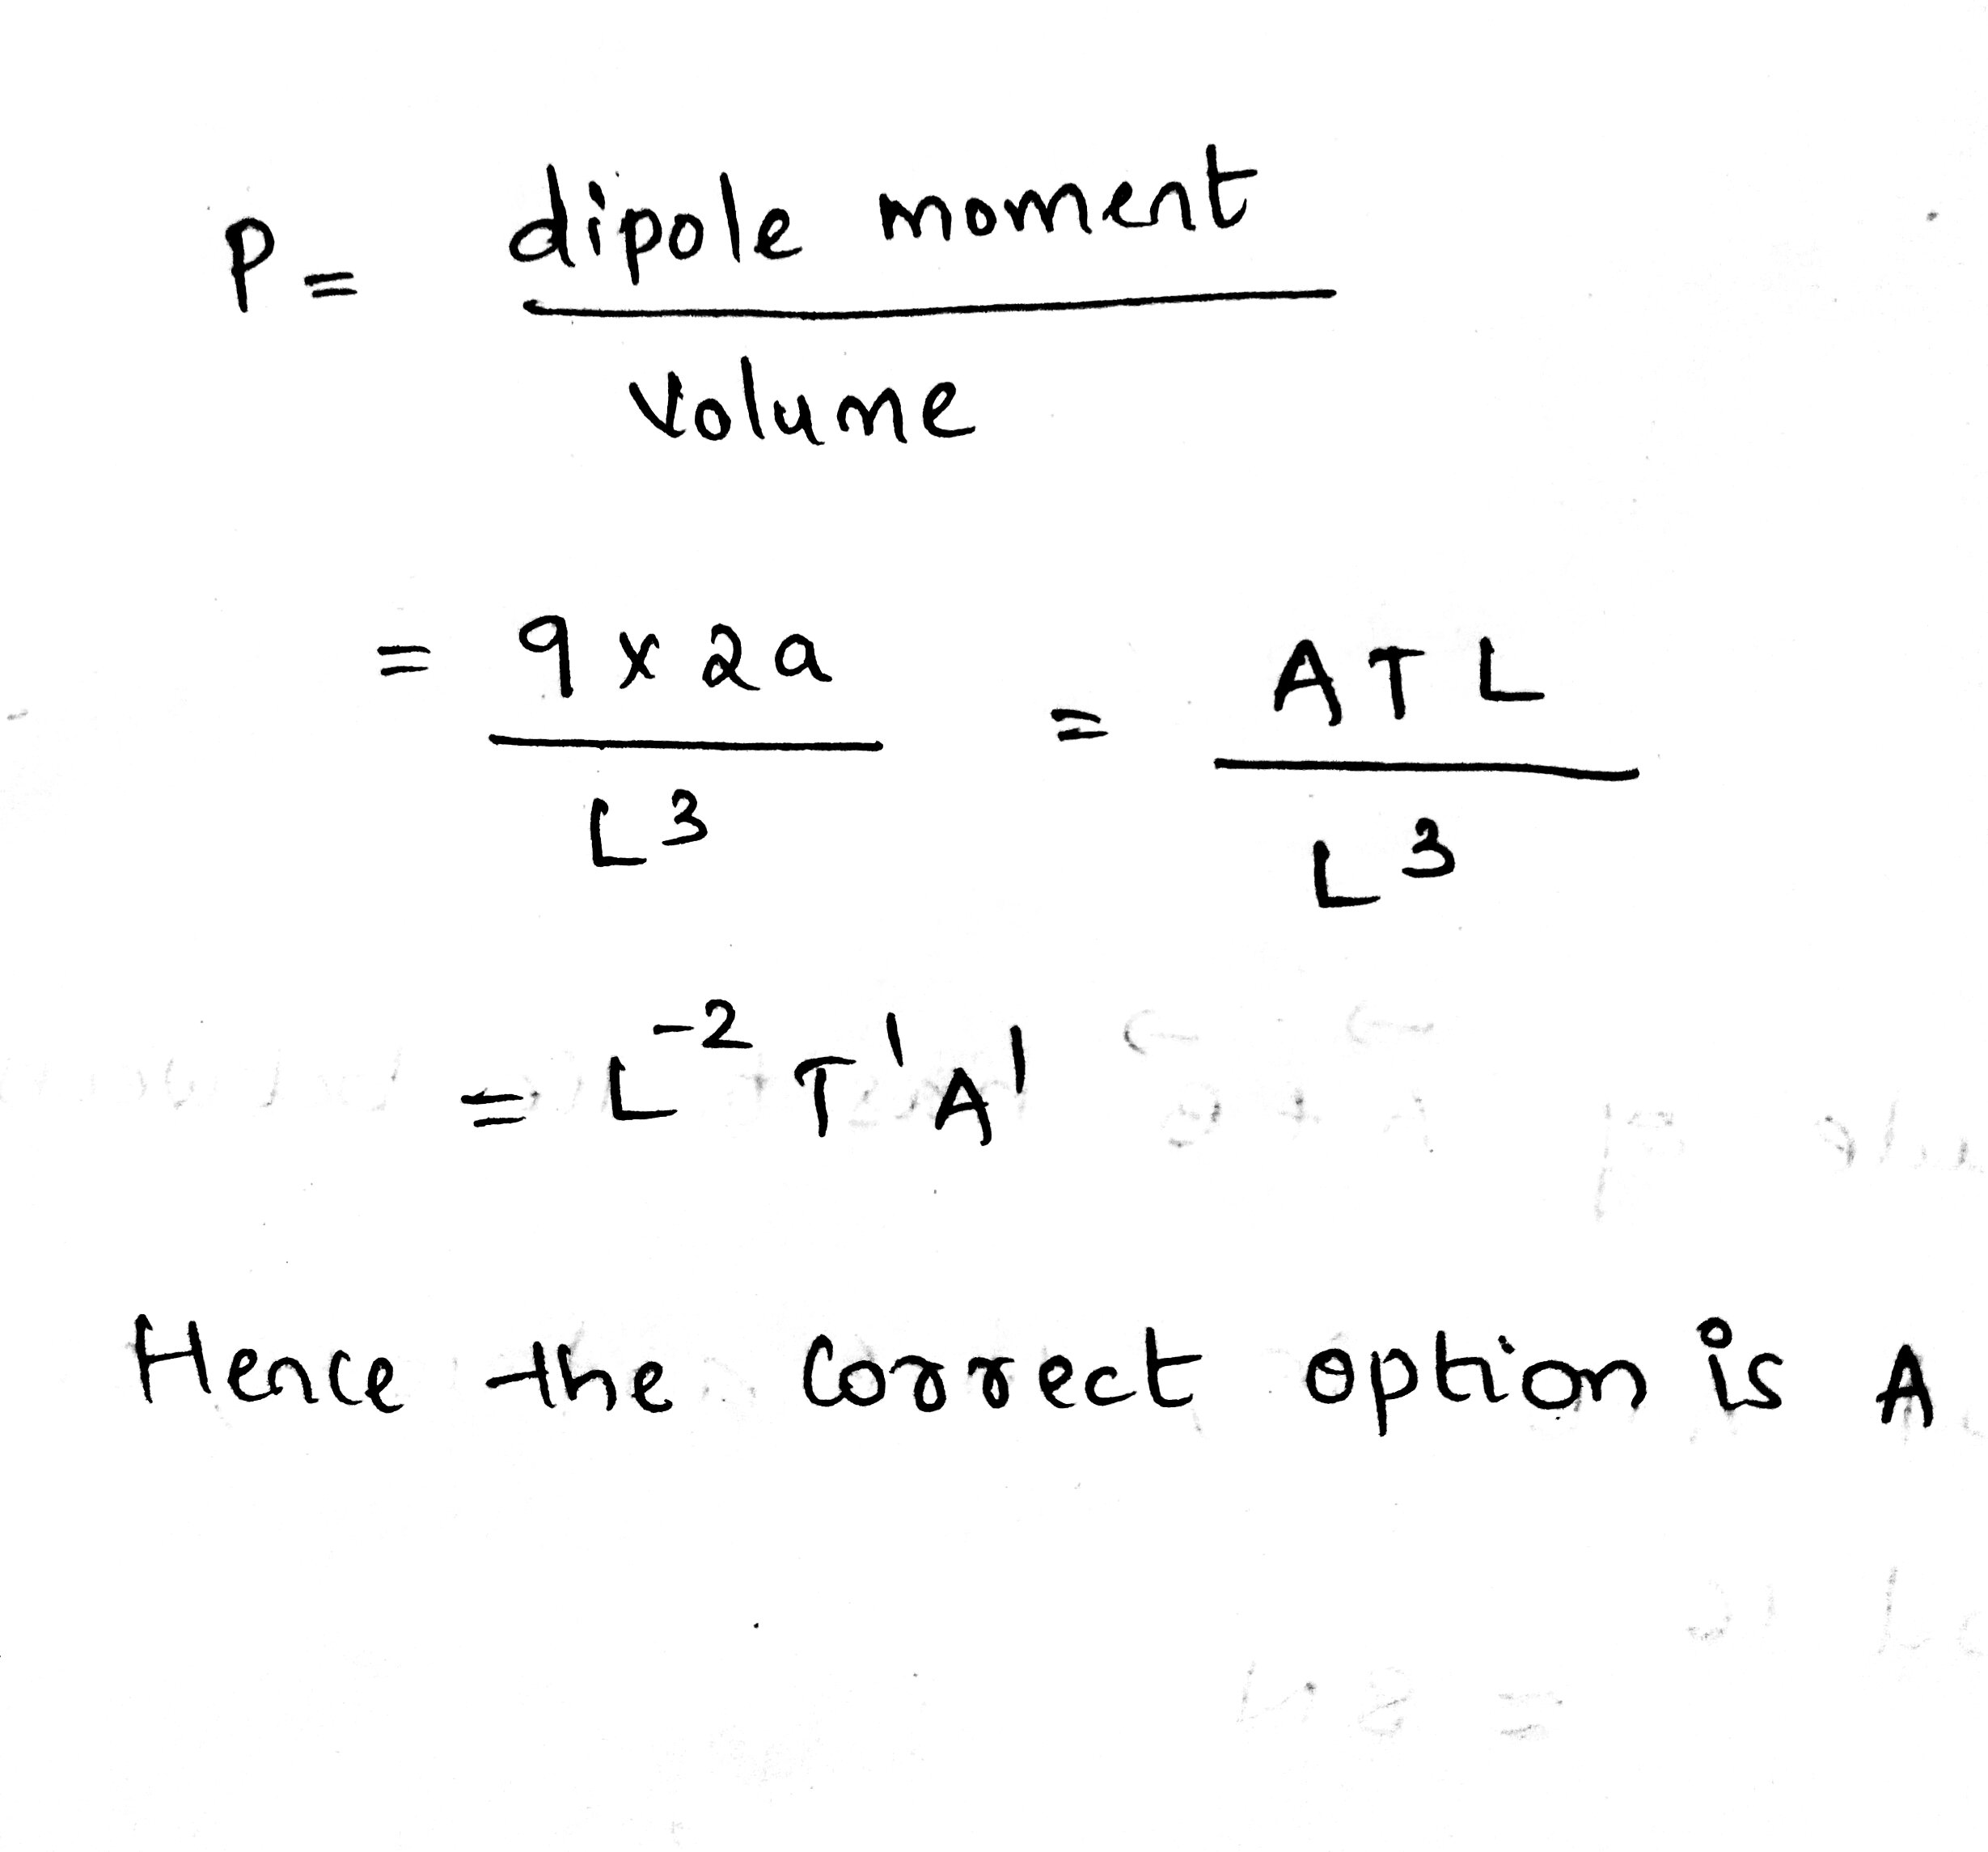 P = dipole moment
volume
= q x 2a = A T L
L³ L³
= L⁻² T¹ A¹
Hence the correct option is A